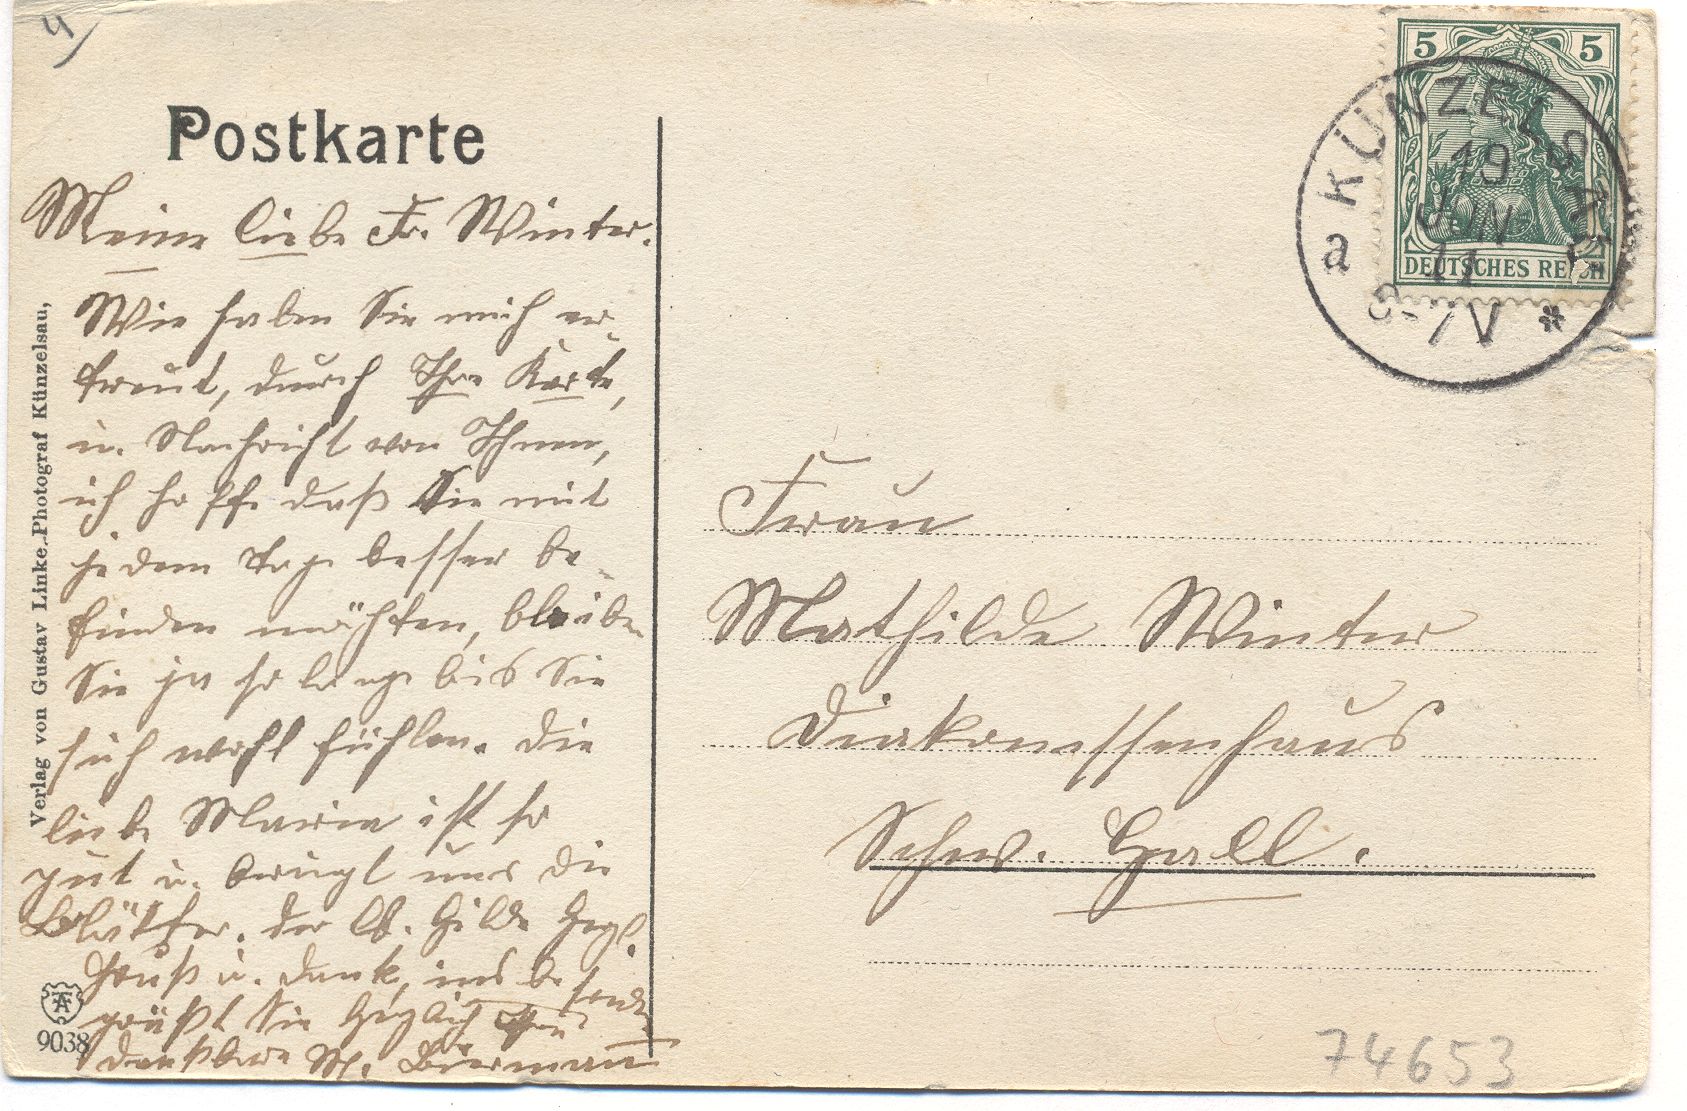 Postkarte
Meine liebe Fr. Winter.
Wie haben Sie mich er-
freut, durch Ihre Karte,
u. Nachricht von Ihnen,
ich hoffe daß Sie mit
jedem Tage besser be-
finden möchten, bleiben
Sie ja so lange bis Sie
sich wohl fühlen. Die
liebe Maria ist so
gut u. bringt uns die
Blätter. Der lb. Hilde Hrzl.
Gruß u. Dank, ins besondre
grüßt Sie herzlich Ihre
dankbare M. Biermann
Verlag von Gustav Linke, Photograf Künzelsau,
9038
5 5
DEUTSCHES REICH
KÜNZELSAU
19
JUN
11
a
6-7 V *
Frau
Mathilde Winter
Diakonissenhaus
Schw. Hall.
74653